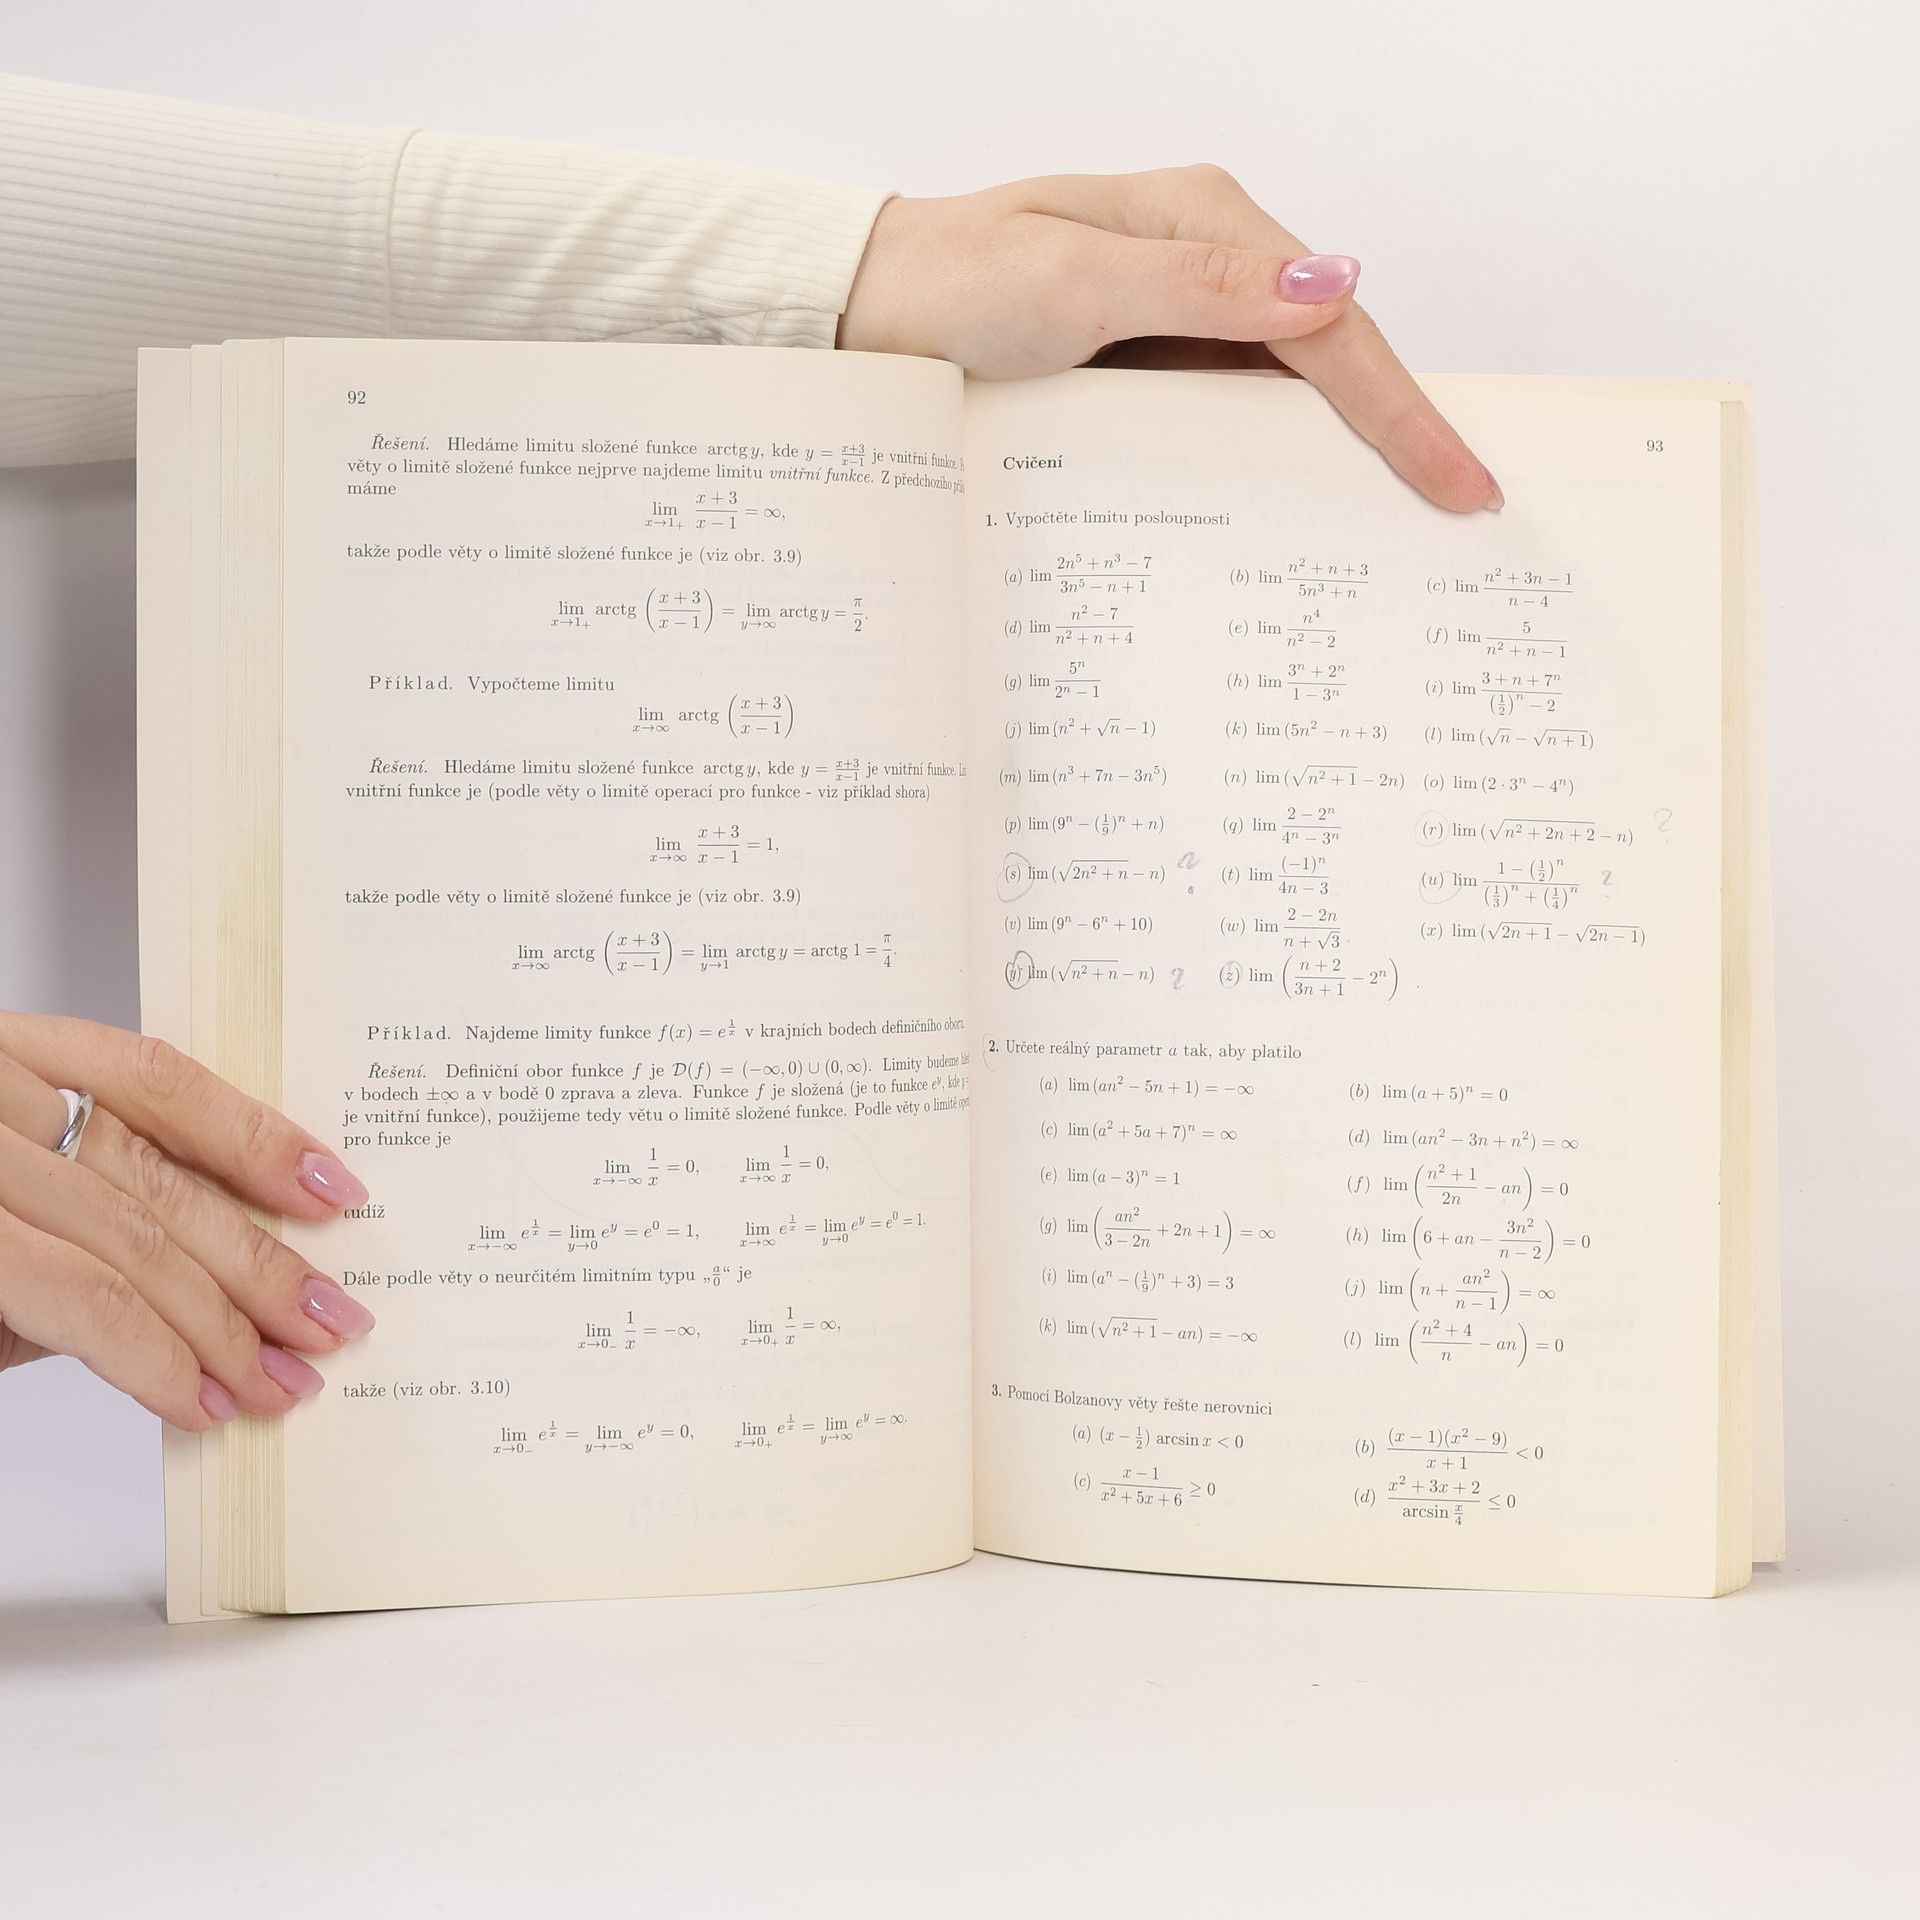 92
Řešení. Hledáme limitu složené funkce arctg y, kde y = \frac{x+3}{x-1} je vnitřní funkce.
věty o limitě složené funkce nejprve najdeme limitu vnitřní funkce. Z předchozího
máme
lim_{x→1+} \frac{x+3}{x-1} = ∞,
takže podle věty o limitě složené funkce je (viz obr. 3.9)
lim_{x→1+} arctg (\frac{x+3}{x-1}) = lim_{y→∞} arctg y = \frac{π}{2}.
Příklad. Vypočteme limitu
lim_{x→∞} arctg (\frac{x+3}{x-1})
Řešení. Hledáme limitu složené funkce arctg y, kde y = \frac{x+3}{x-1} je vnitřní funkce.
vnitřní funkce je (podle věty o limitě operací pro funkce - viz příklad shora)
lim_{x→∞} \frac{x+3}{x-1} = 1,
takže podle věty o limitě složené funkce je (viz obr. 3.9)
lim_{x→∞} arctg (\frac{x+3}{x-1}) = lim_{y→1} arctg y = arctg 1 = \frac{π}{4}.
Příklad. Najdeme limity funkce f(x) = e^{\frac{1}{x}} v krajních bodech definičního oboru
Řešení. Definiční obor funkce f je D(f) = (−∞, 0) ∪ (0, ∞). Limity budeme
v bodech ±∞ a v bodě 0 zprava a zleva. Funkce f je složená (je to funkce e^y, kde y =
je vnitřní funkce), použijeme tedy větu o limitě složené funkce. Podle věty o limitě
pro funkce je
lim_{x→−∞} \frac{1}{x} = 0, lim_{x→∞} \frac{1}{x} = 0,
tudíž
lim_{x→−∞} e^{\frac{1}{x}} = lim_{y→0} e^y = e^0 = 1, lim_{x→∞} e^{\frac{1}{x}} = lim_{y→0} e^y = e^0 = 1.
Dále podle věty o neurčitém limitním typu „\frac{a}{0}“ je
lim_{x→0−} \frac{1}{x} = −∞, lim_{x→0+} \frac{1}{x} = ∞,
takže (viz obr. 3.10)
lim_{x→0−} e^{\frac{1}{x}} = lim_{y→−∞} e^y = 0, lim_{x→0+} e^{\frac{1}{x}} = lim_{y→∞} e^y = ∞.
93
Cvičení
1. Vypočtěte limitu posloupnosti
(a) lim \frac{2n^5 + n^3 − 7}{3n^5 − n + 1} (b) lim \frac{n^2 + n + 3}{5n^3 + n} (c) lim \frac{n^2 + 3n − 1}{n − 4}
(d) lim \frac{n^2 − 7}{n^2 + n + 4} (e) lim \frac{n^4}{n^2 − 2} (f) lim \frac{5}{n^2 + n − 1}
(g) lim \frac{5^n}{2^n − 1} (h) lim \frac{3^n + 2^n}{1 − 3^n} (i) lim \frac{3 + n + 7^n}{(\frac{1}{2})^n − 2}
(j) lim (n^2 + √n − 1) (k) lim (5n^2 − n + 3) (l) lim (√n − √{n + 1})
(m) lim (n^3 + 7n − 3n^5) (n) lim (√{n^2 + 1} − 2n) (o) lim (2 · 3^n − 4^n)
(p) lim (9^n − (\frac{1}{9})^n + n) (q) lim \frac{2 − 2^n}{4^n − 3^n} (r) lim (√{n^2 + 2n + 2} − n) ?
(s) lim (√{2n^2 + n} − n) ? (t) lim \frac{(−1)^n}{4n − 3} (u) lim \frac{1 − (\frac{1}{2})^n}{(\frac{1}{3})^n + (\frac{1}{4})^n} ?
(v) lim (9^n − 6^n + 10) (w) lim \frac{2 − 2n}{n + √3} (x) lim (√{2n + 1} − √{2n − 1})
(y) lim (√{n^2 + n} − n) ? (z) lim (\frac{n + 2}{3n + 1} − 2^n)
2. Určete reálný parametr a tak, aby platilo
(a) lim (an^2 − 5n + 1) = −∞ (b) lim (a + 5)^n = 0
(c) lim (a^2 + 5a + 7)^n = ∞ (d) lim (an^2 − 3n + n^2) = ∞
(e) lim (a − 3)^n = 1 (f) lim (\frac{n^2 + 1}{2n} − an) = 0
(g) lim (\frac{an^2}{3 − 2n} + 2n + 1) = ∞ (h) lim (6 + an − \frac{3n^2}{n − 2}) = 0
(i) lim (a^n − (\frac{1}{9})^n + 3) = 3 (j) lim (n + \frac{an^2}{n − 1}) = ∞
(k) lim (√{n^2 + 1} − an) = −∞ (l) lim (\frac{n^2 + 4}{n} − an) = 0
3. Pomocí Bolzanovy věty řešte nerovnici
(a) (x − \frac{1}{2}) arcsin x < 0 (b) \frac{(x − 1)(x^2 − 9)}{x + 1} < 0
(c) \frac{x − 1}{x^2 + 5x + 6} ≥ 0 (d) \frac{x^2 + 3x + 2}{arcsin \frac{x}{4}} ≤ 0